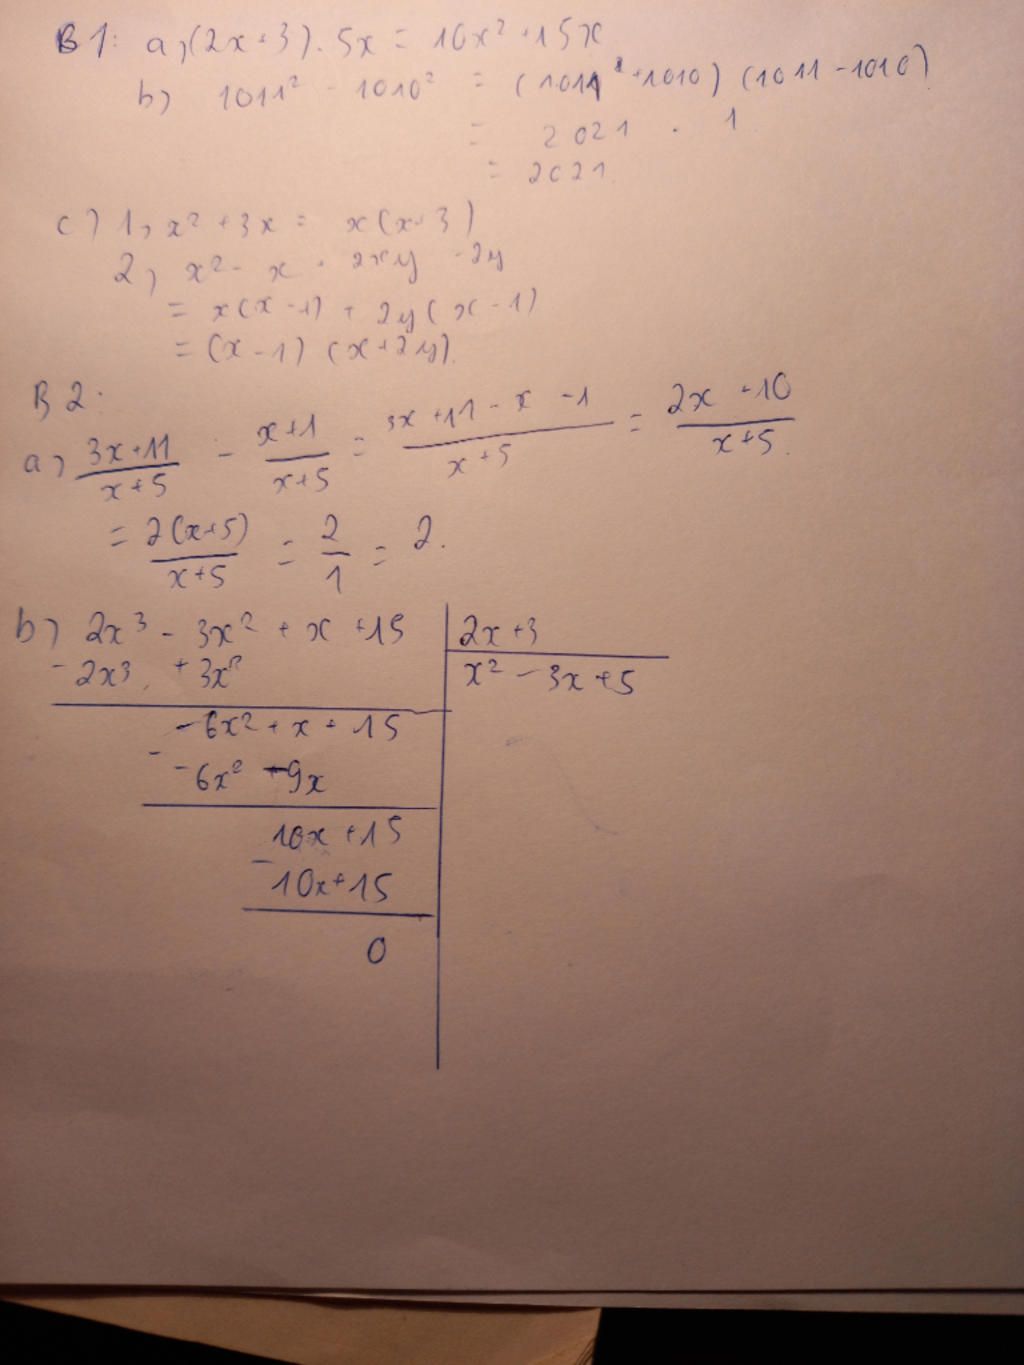 B1: a, (2x+3).5x = 10x² + 15x
b) 1011² - 1010² = (1011 + 1010) (1011 - 1010)
= 2021 . 1
= 2021.
c) 1, x² + 3x = x(x+3)
2, x² - x + 2xy - 2y
= x(x-1) + 2y(x-1)
= (x-1) (x+2y).
B2:
a, \frac{3x+11}{x+5} - \frac{x+1}{x+5} = \frac{3x+11-x-1}{x+5} = \frac{2x+10}{x+5}.
= \frac{2(x+5)}{x+5} = \frac{2}{1} = 2.
b, 2x³ - 3x² + x + 15 | 2x+3
- 2x³ + 3x² | x² - 3x + 5
-6x² + x + 15
- -6x² - 9x
10x + 15
- 10x + 15
0